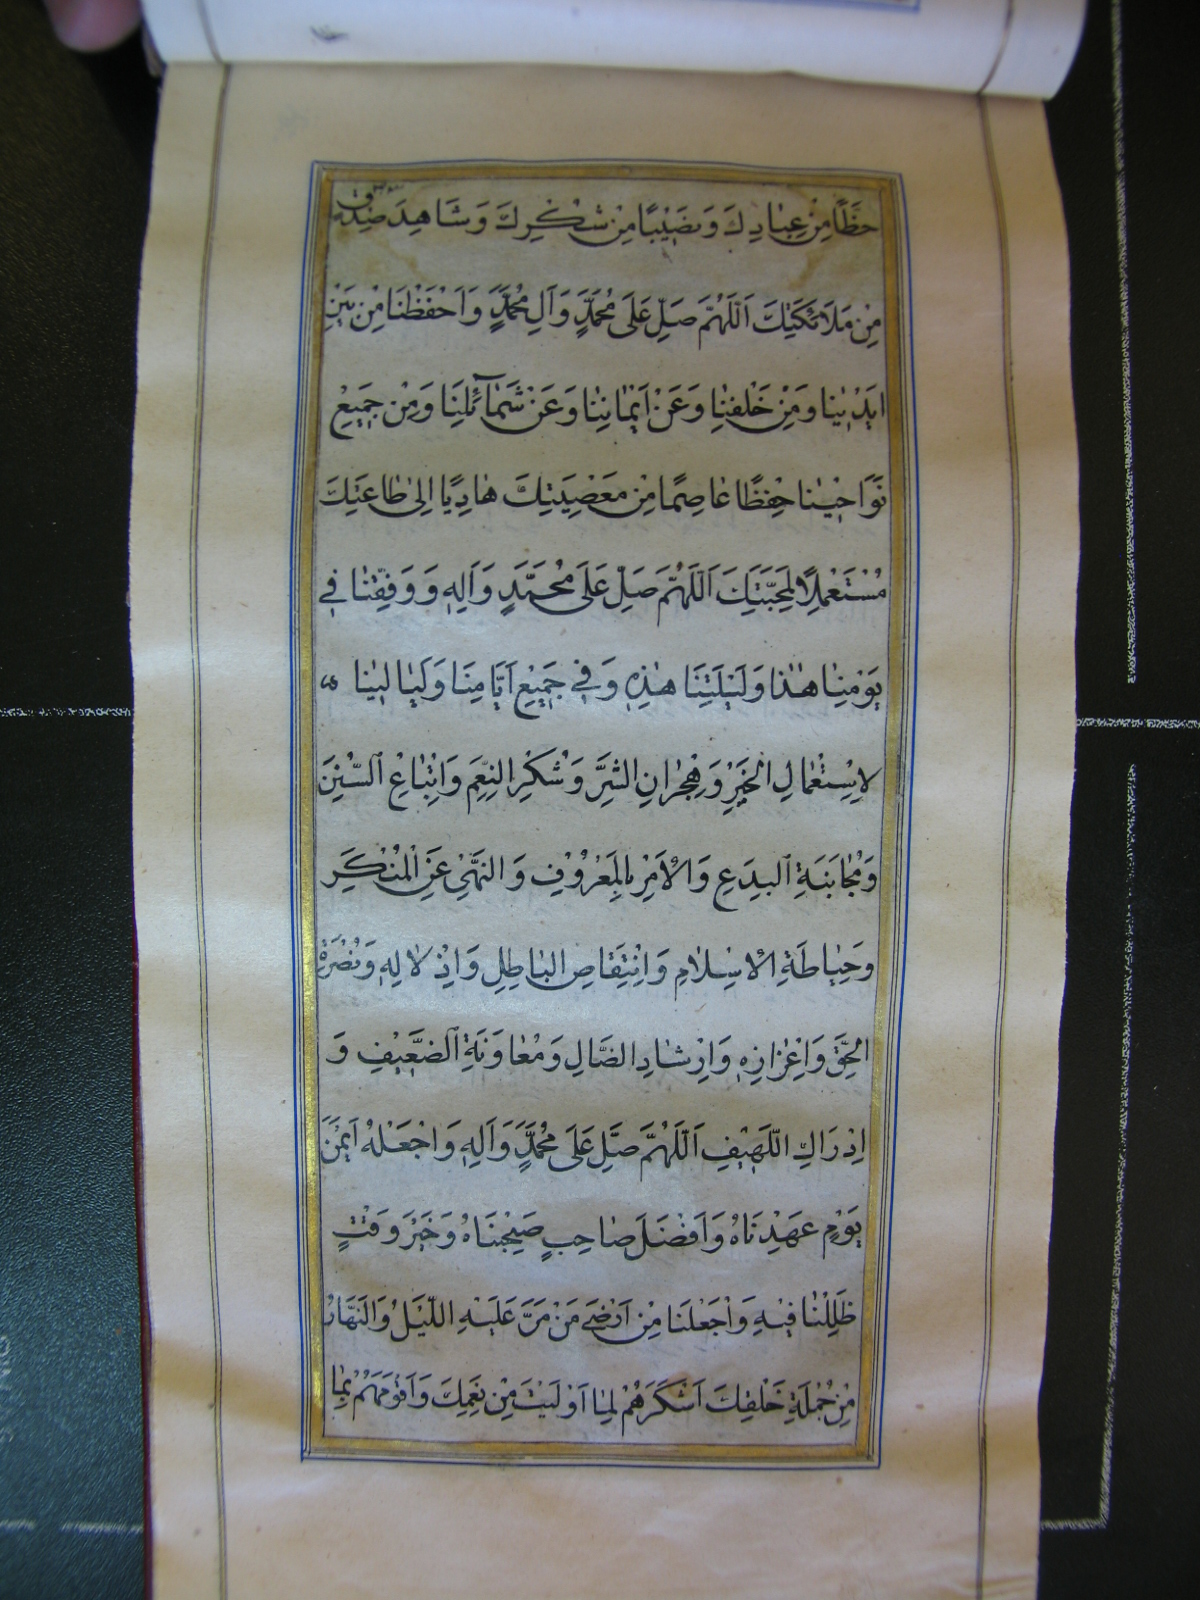 حَظًّا مِنْ عِبَادِكَ وَنَصِيْبًا مِنْ شُكْرِكَ وَشَاهِدَ صِدْقٍ
مِنْ مَلَائِكَتِكَ اَللّٰهُمَّ صَلِّ عَلَى مُحَمَّدٍ وَآلِ مُحَمَّدٍ وَاَحْفَظْنَا مِنْ بَيْنِ
اَيْدِيْنَا وَمِنْ خَلْفِنَا وَعَنْ اَيْمَانِنَا وَعَنْ شَمَآئِلِنَا وَمِنْ جَمِيْعِ
نَوَاحِيْنَا حِفْظًا عَاصِمًا مِنْ مَعْصِيَتِكَ هَادِيًا اِلىٰ طَاعَتِكَ
مُسْتَعْمِلًا لِمَحَبَّتِكَ اَللّٰهُمَّ صَلِّ عَلَى مُحَمَّدٍ وَآلِهِ وَوَفِّقْنَا فِي
يَوْمِنَا هٰذَا وَلَيْلَتِنَا هٰذِهِ وَفِي جَمِيْعِ اَيَّامِنَا وَلَيَالِيْنَا
لِاِسْتِعْمَالِ الْخَيْرِ وَهِجْرَانِ الشَّرِّ وَشُكْرِ النِّعَمِ وَاتِّبَاعِ السُّنَنِ
وَمُجَانَبَةِ الْبِدَعِ وَالْاَمْرِ بِالْمَعْرُوْفِ وَالنَّهْيِ عَنِ الْمُنْكَرِ
وَحِيَاطَةِ الْاِسْلَامِ وَانْتِقَاصِ الْبَاطِلِ وَاِذْلَالِهِ وَنُصْرَةِ
الْحَقِّ وَاِعْزَازِهِ وَاِرْشَادِ الضَّالِ وَمُعَاوَنَةِ الضَّعِيْفِ وَ
اِدْرَاكِ اللَّهِيْفِ اَللّٰهُمَّ صَلِّ عَلَى مُحَمَّدٍ وَآلِهِ وَاجْعَلْهُ اَيْمَنَ
يَوْمٍ عَهِدْنَاهُ وَاَفْضَلَ صَاحِبٍ صَحِبْنَاهُ وَخَيْرَ وَقْتٍ
ظَلِلْنَا فِيْهِ وَاجْعَلْنَا مِنْ اَرْضَى مَنْ مَرَّ عَلَيْهِ اللَّيْلُ وَالنَّهَارُ
مِنْ جُمْلَةِ خَلْقِكَ اَشْكَرَهُمْ لِمَا اَوْلَيْتَ مِنْ نِعَمِكَ وَاَقْوَمَهُمْ بِمَا